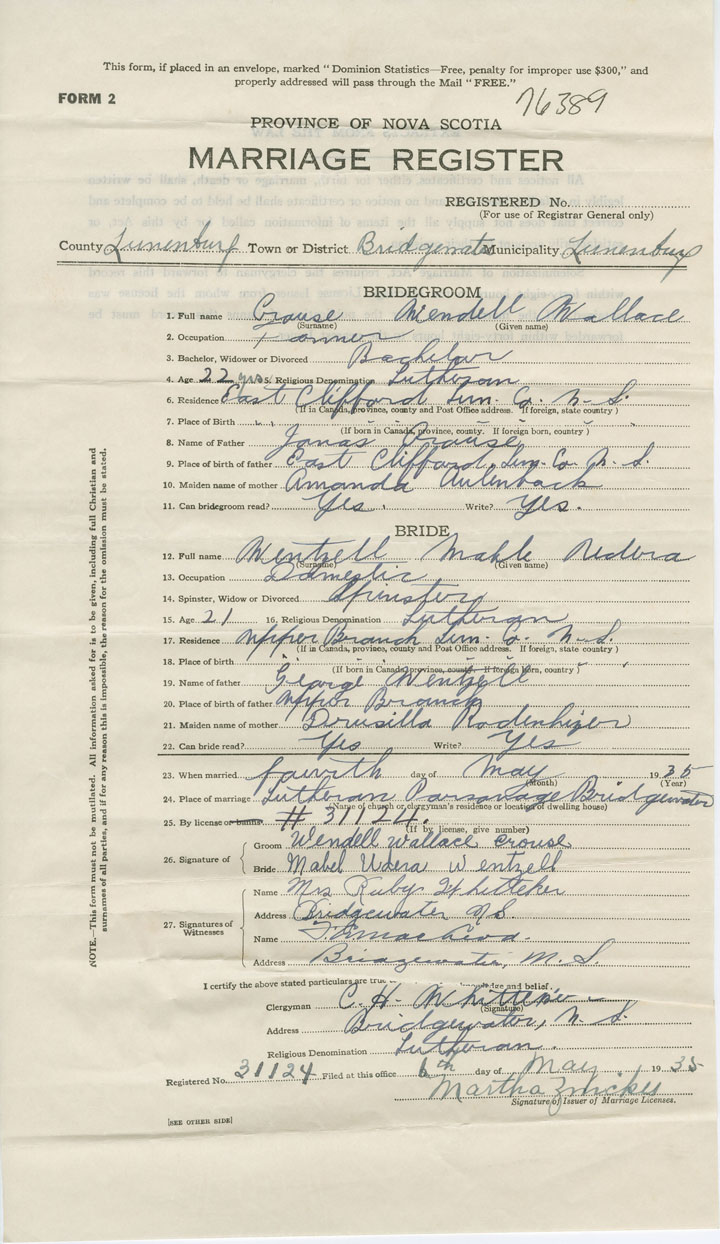 This form, if placed in an envelope, marked "Dominion Statistics—Free, penalty for improper use $300," and
properly addressed will pass through the Mail "FREE."
FORM 2
76389
PROVINCE OF NOVA SCOTIA
MARRIAGE REGISTER
REGISTERED No.
(For use of Registrar General only)
County Lunenburg Town or District Bridgewater Municipality Lunenburg
BRIDEGROOM
1. Full name Crouse Wendell Wallace
(Surname) (Given name)
2. Occupation Farmer
3. Bachelor, Widower or Divorced Bachelor
4. Age 22 yrs. Religious Denomination Lutheran
6. Residence East Clifford Lun. Co. N. S.
(If in Canada, province, county and Post Office address. If foreign, state country)
7. Place of Birth " "
(If born in Canada, province, county. If foreign born, country)
8. Name of Father Jonas Crouse
9. Place of birth of father East Clifford, Lun. Co. N. S.
10. Maiden name of mother Amanda Aulenback
11. Can bridegroom read? Yes. Write? Yes.
BRIDE
12. Full name Wentzell Mable Udora
(Surname) (Given name)
13. Occupation Domestic
14. Spinster, Widow or Divorced Spinster
15. Age 21 16. Religious Denomination Lutheran
17. Residence Upper Branch Lun. Co. N. S.
(If in Canada, province, county and Post Office address. If foreign, state country)
18. Place of birth " " " "
(If born in Canada, province, county. If foreign born, country)
19. Name of father George Wentzell
20. Place of birth of father Upper Branch
21. Maiden name of mother Drusilla Rodenhizer
22. Can bride read? Yes Write? Yes
23. When married fourth day of May 1935
(Month) (Year)
24. Place of marriage Lutheran Parsonage Bridgewater
(Name of church or clergyman's residence or location of dwelling house)
25. By license or banns # 31124.
(If by license, give number)
26. Signature of
Groom Wendell Wallace Crouse
Bride Mabel Udera Wentzell
27. Signatures of Witnesses
Name Mrs Ruby Whitteker
Address Bridgewater N.S.
Name
Address Bridgewater, N. S.
I certify the above stated particulars are true and belief.
Clergyman C. H. Whitteker
(Signature)
Address Bridgewater, N. S.
Religious Denomination Lutheran.
Registered No. 31124 Filed at this office 6th day of May 1935
Martha Zwicker
Signature of Issuer of Marriage Licenses.
[SEE OTHER SIDE]
NOTE.—This form must not be mutilated. All information asked for is to be given, including full Christian and
surnames of all parties, and if for any reason this is impossible, the reason for the omission must be stated.